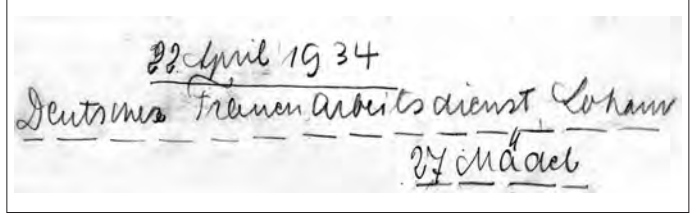 22 April 1934
Deutscher Frauen Arbeitsdienst, Lohann
27 Mädel